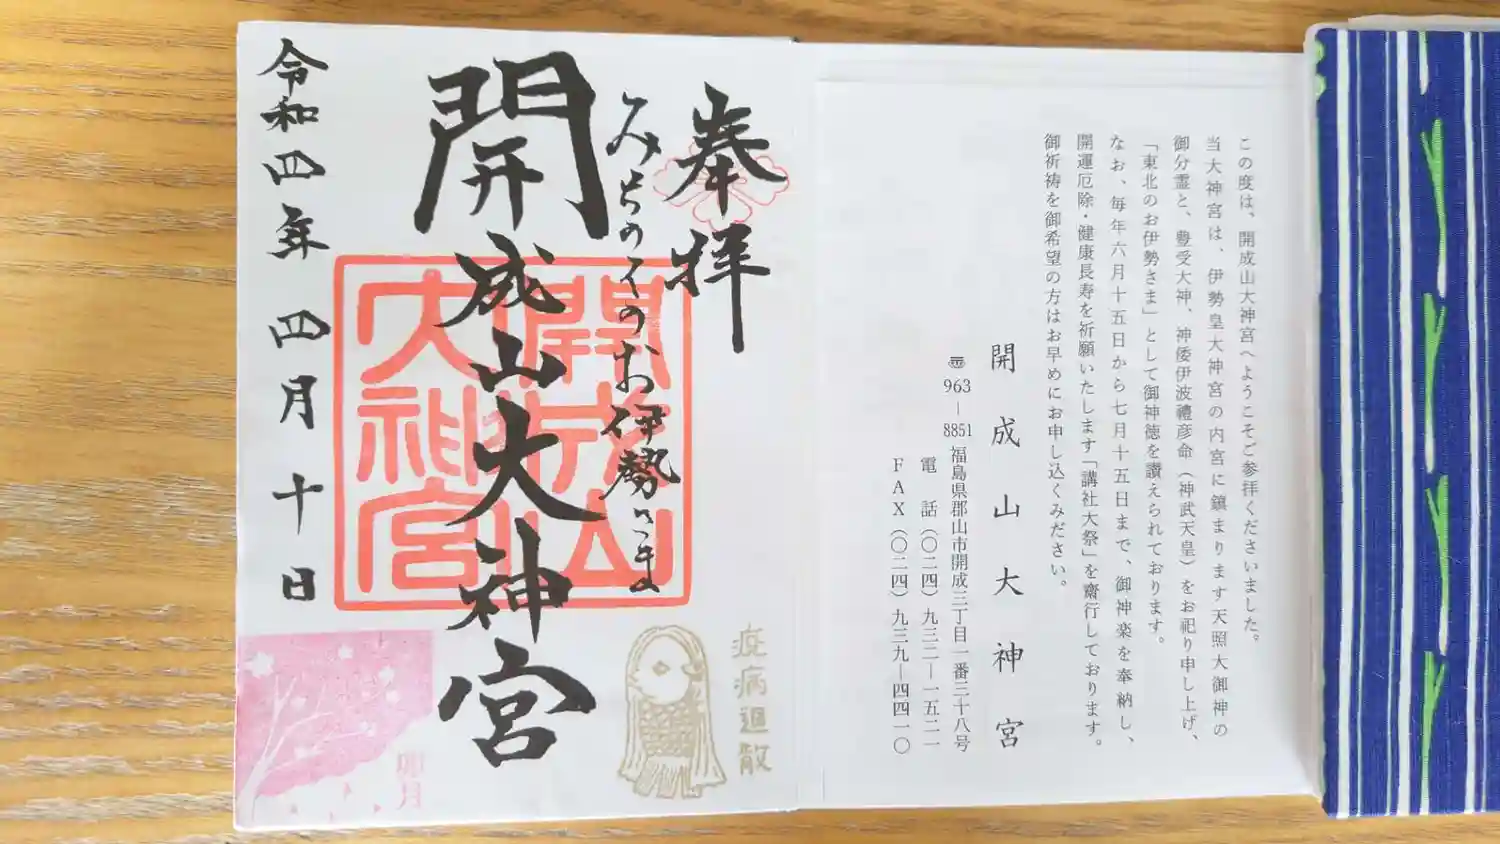 この度は、開成山大神宮へようこそご参拝くださいました。
当大神宮は、伊勢皇大神宮の内宮に鎮まります天照大御神の
御分霊と、豊受大神、神倭伊波禮彦命（神武天皇）をお祀り申し上げ、
「東北のお伊勢さま」として御神徳を讃えられております。
なお、毎年六月十五日から七月十五日まで、御神楽を奉納し、
開運厄除・健康長寿を祈願いたします「講社大祭」を齋行しております。
御祈祷を御希望の方はお早めにお申し込くみださい。
開成山大神宮
〠963－8851 福島県郡山市開成三丁目一番三十八号
電話（〇二四）九三二―一五二一
ＦＡＸ（〇二四）九三九―四四一〇
奉拝
みちのくのお伊勢さま
開成山大神宮
令和四年 四月 十日
開成山
大神宮
疫病退散
卯月